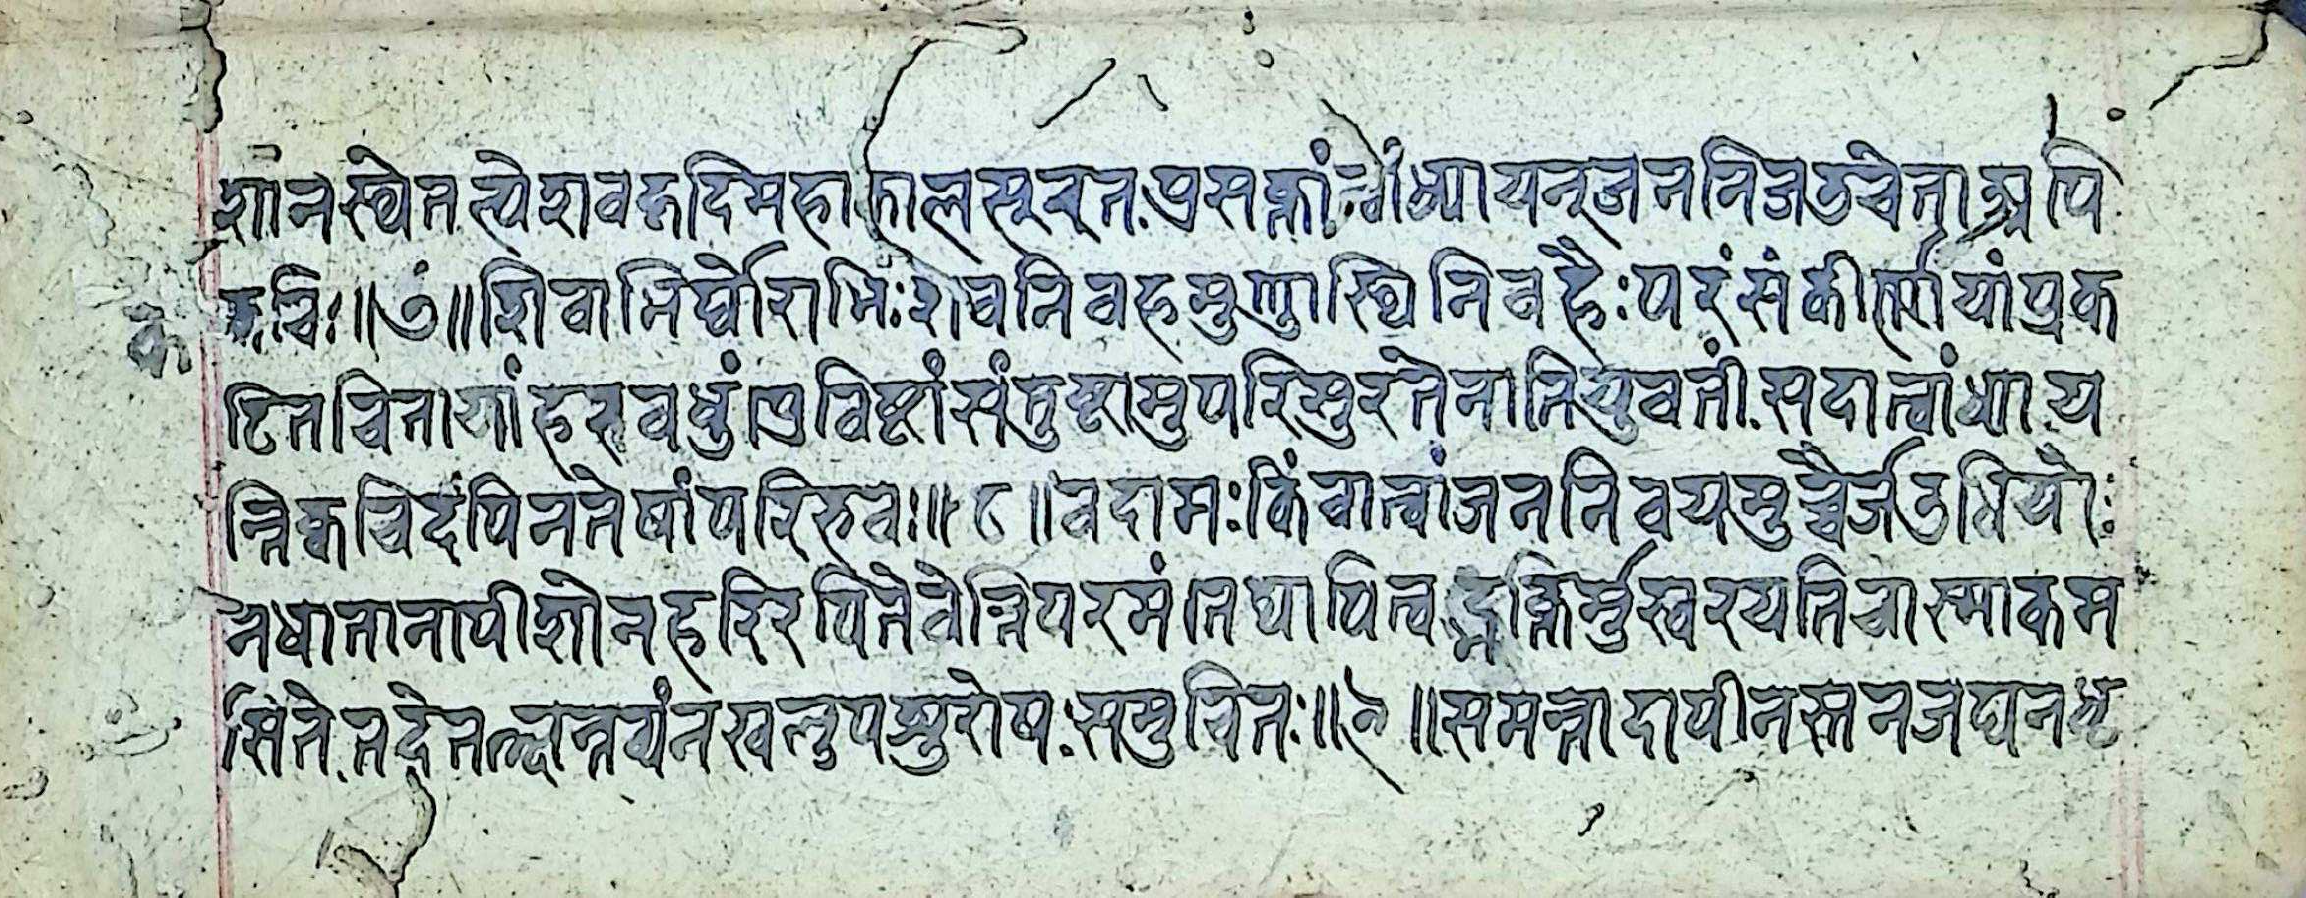 शानस्थेतल्पेशवहृदिमहाकालसूरत.प्रसक्तांत्वांध्यायन्जननिजडचेताअपि
कविः॥७॥शिवाभिर्घोराभिःशवनिवहमुण्डास्थिनिवहैःपरंसंकीर्णायांप्रक
क
टितचितायांहरवधुंप्रविष्टांसंतुष्टामुपरिसुरतेनातियुवतीं.सदात्वांध्याय
न्तिक्वचिदपिनतेषांपरिभवः॥८॥वदामःकिंवात्वांजननिवयमुच्चैर्जडधियोः
नधातानापीशोनहरिरपितेवेत्तिपरमंतथापित्वद्भक्तिर्मुखरयतिचास्माकम
सिते.तदेतत्क्षन्तव्यंनखलुपशुरोष.समुचितः॥९॥समन्तादापीनस्तनजघनधृ